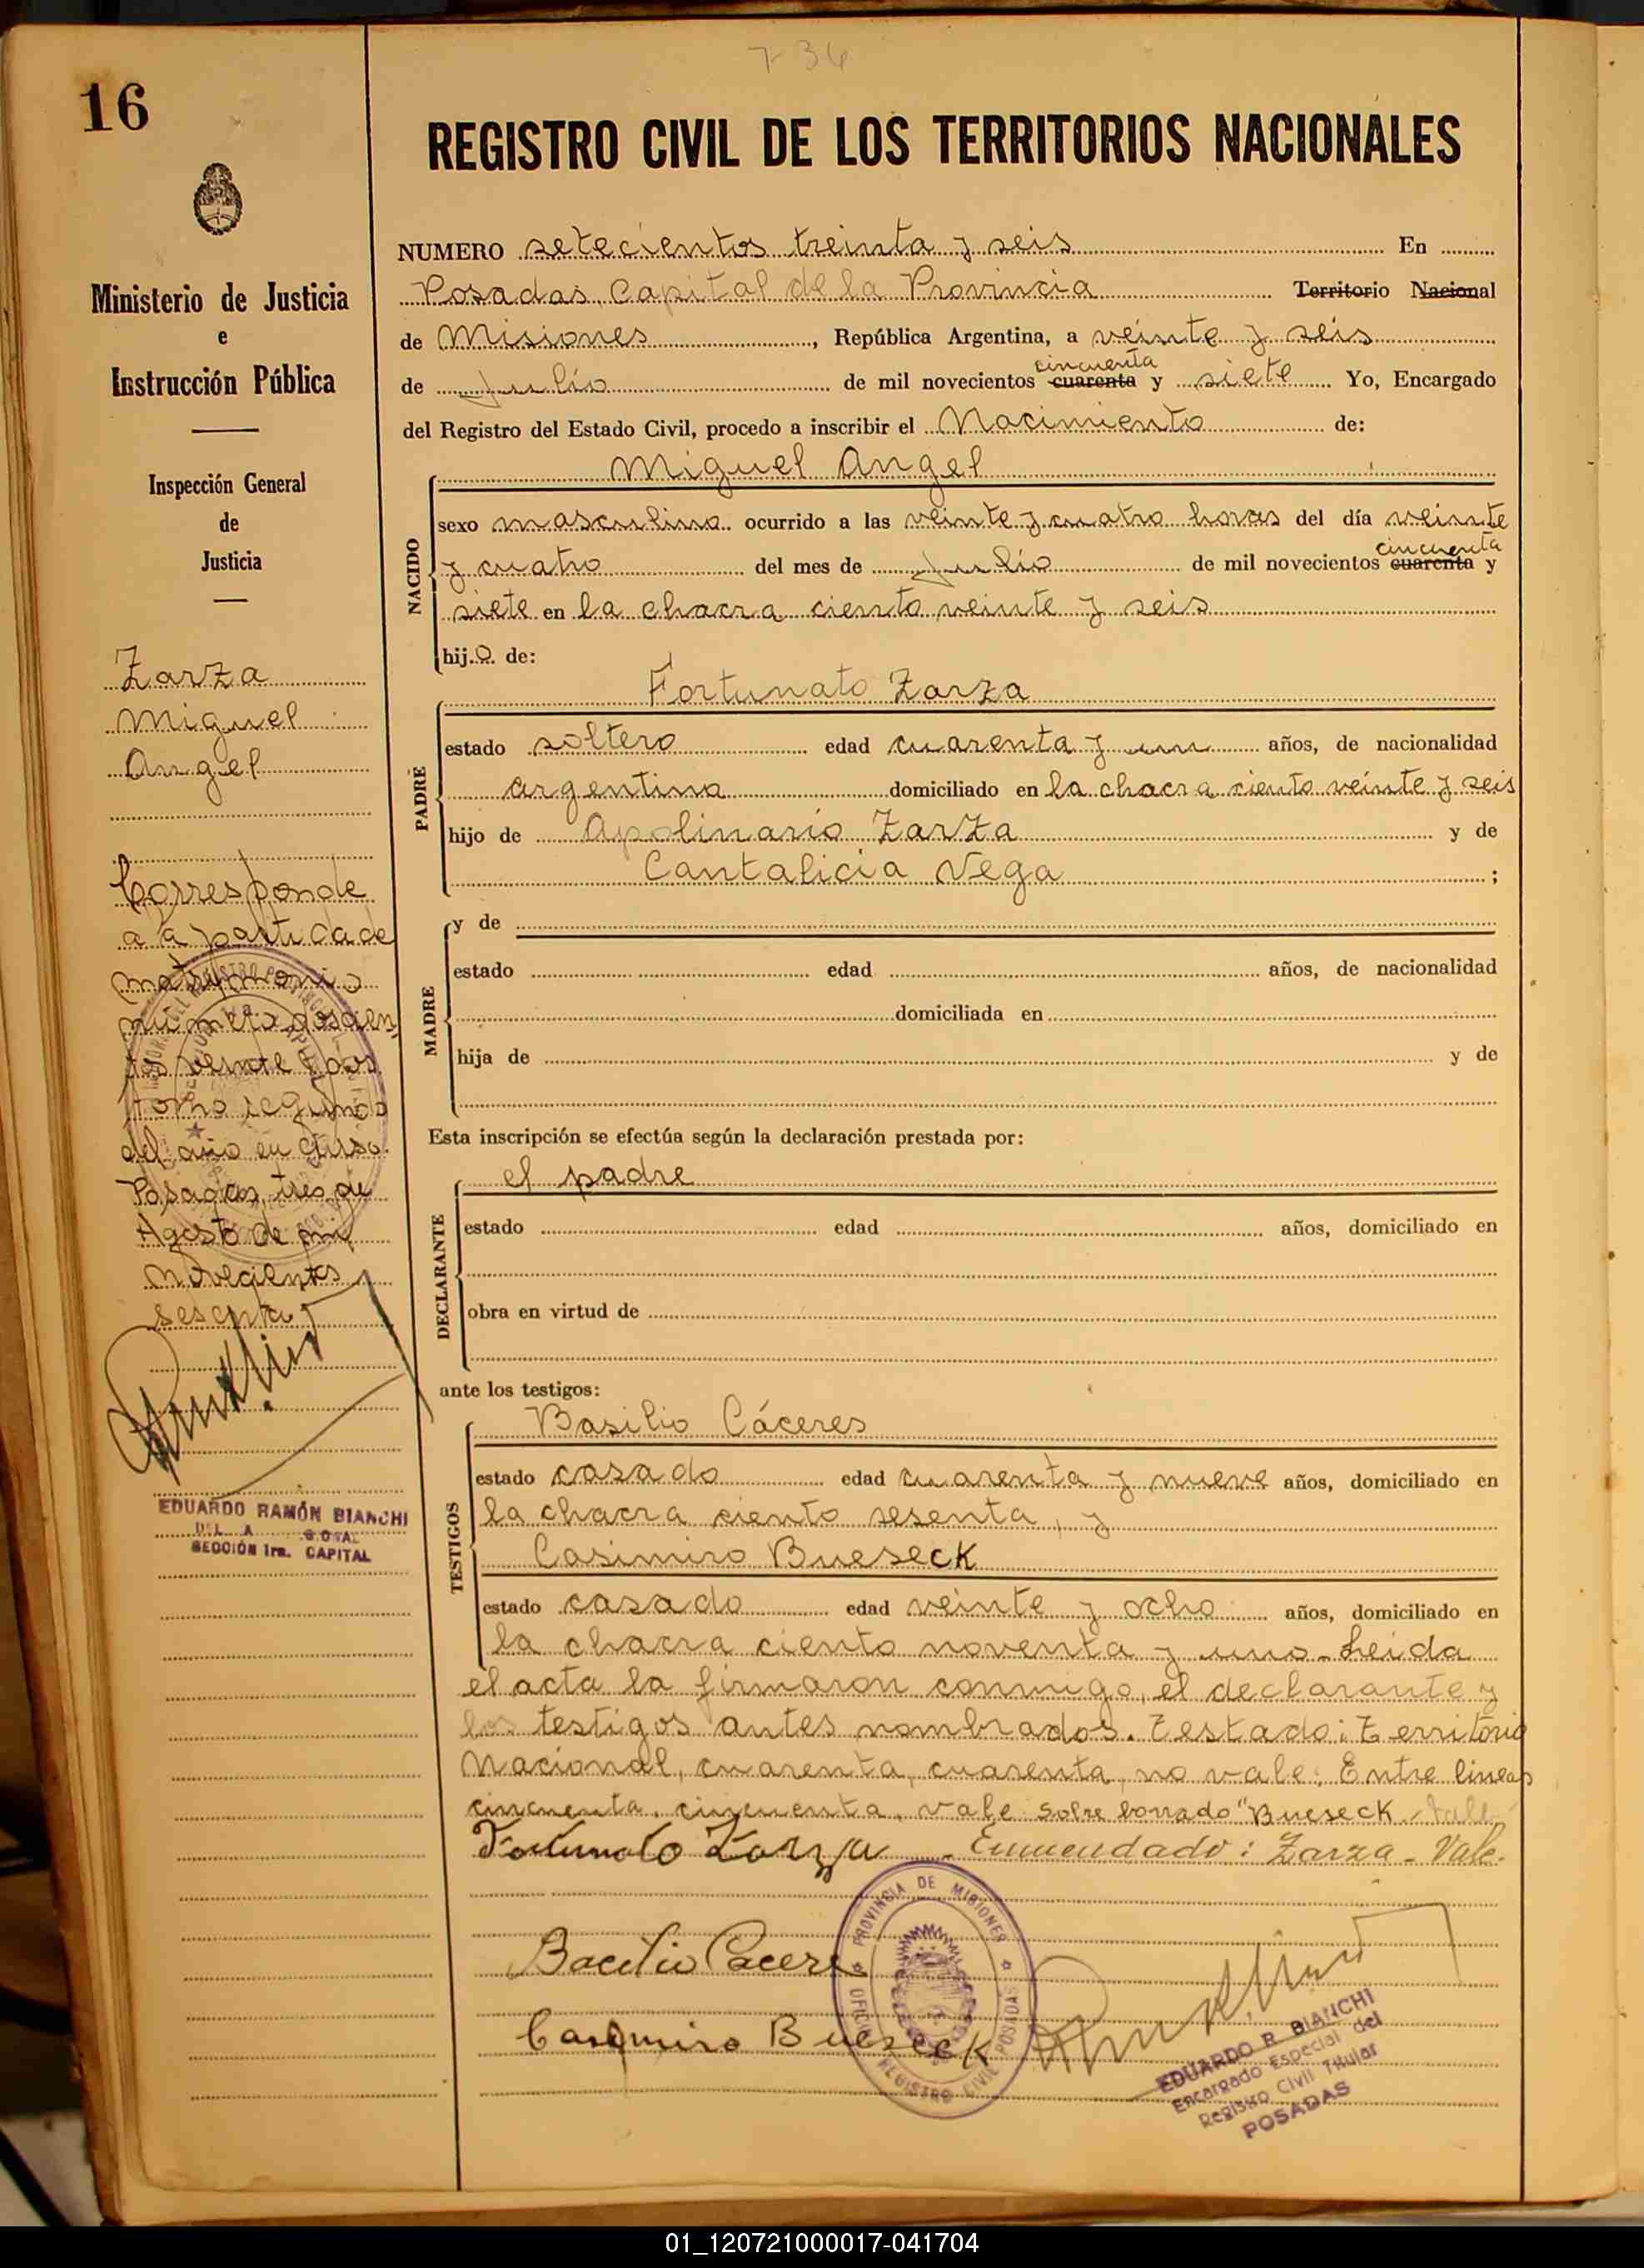 7-36
16
REGISTRO CIVIL DE LOS TERRITORIOS NACIONALES
Ministerio de Justicia
e
Instrucción Pública
Inspección General
de
Justicia
Zarza
Miguel
Angel
Corresponde
a la partida de
matrimonio
número doscien
tos veinte y dos
tomo segundo
del año en curso.
Posadas, tres de
Agosto de mil
novecientos
sesenta
EDUARDO RAMÓN BIANCHI
SECCIÓN 1ra. CAPITAL
NUMERO setecientos treinta y seis En
Posadas, Capital de la Provincia Territorio Nacional
de Misiones, República Argentina, a veinte y seis
cincuenta
de Julio de mil novecientos cuarenta y siete Yo, Encargado
del Registro del Estado Civil, procedo a inscribir el Nacimiento de:
NACIDO
Miguel Angel
sexo masculino ocurrido a las veinte y cuatro horas del día veinte
cincuenta
y cuatro del mes de Julio de mil novecientos cuarenta y
siete en la chacra ciento veinte y seis
hij.o. de:
PADRE
Fortunato Zarza
estado soltero edad cuarenta y un años, de nacionalidad
argentina domiciliado en la chacra ciento veinte y seis
hijo de Apolinario Zarza y de
Cantalicia Vega ;
MADRE
y de
estado edad años, de nacionalidad
domiciliada en
hija de y de
Esta inscripción se efectúa según la declaración prestada por:
DECLARANTE
el padre
estado edad años, domiciliado en
obra en virtud de
ante los testigos:
TESTIGOS
Basilio Cáceres
estado casado edad cuarenta y nueve años, domiciliado en
la chacra ciento sesenta, y
Casimiro Bueseck
estado casado edad veinte y ocho años, domiciliado en
la chacra ciento noventa y uno. Leida
el acta la firmaron conmigo, el declarante y
los testigos antes nombrados. Testado: Territorio
Nacional, cuarenta, cuarenta, no vale. Entre lineas
cincuenta, cincuenta, vale sobre borrado "Bueseck - Vale
Fortunato Zarza Enmendado: Zarza - Vale.
Bacilio Cacere
Casimiro Bueseck
PROVINCIA DE MISIONES
OFICINA REGISTRO CIVIL POSADAS
EDUARDO R. BIANCHI
Encargado Especial del
Registro Civil Titular
POSADAS
01_120721000017-041704